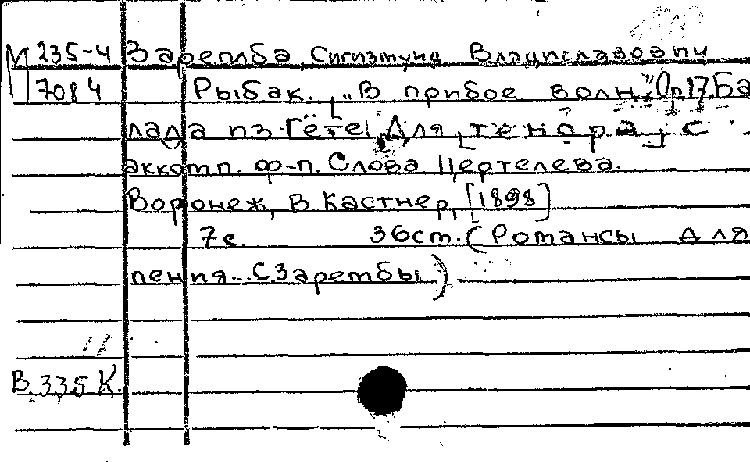 М 235-4 Заремба, Сигизмунд Владиславович
7084 Рыбак. „В прибое волн." Оп. 17. Ба
лада из Гёте. Для [тенора] с
аккомп. ф-п. Слова Цертелева.
Воронеж, В. Кастнер, [1898]
7 с. 36 cm. (Романсы для
пения.. С. Зарембы)
В. 335 К.